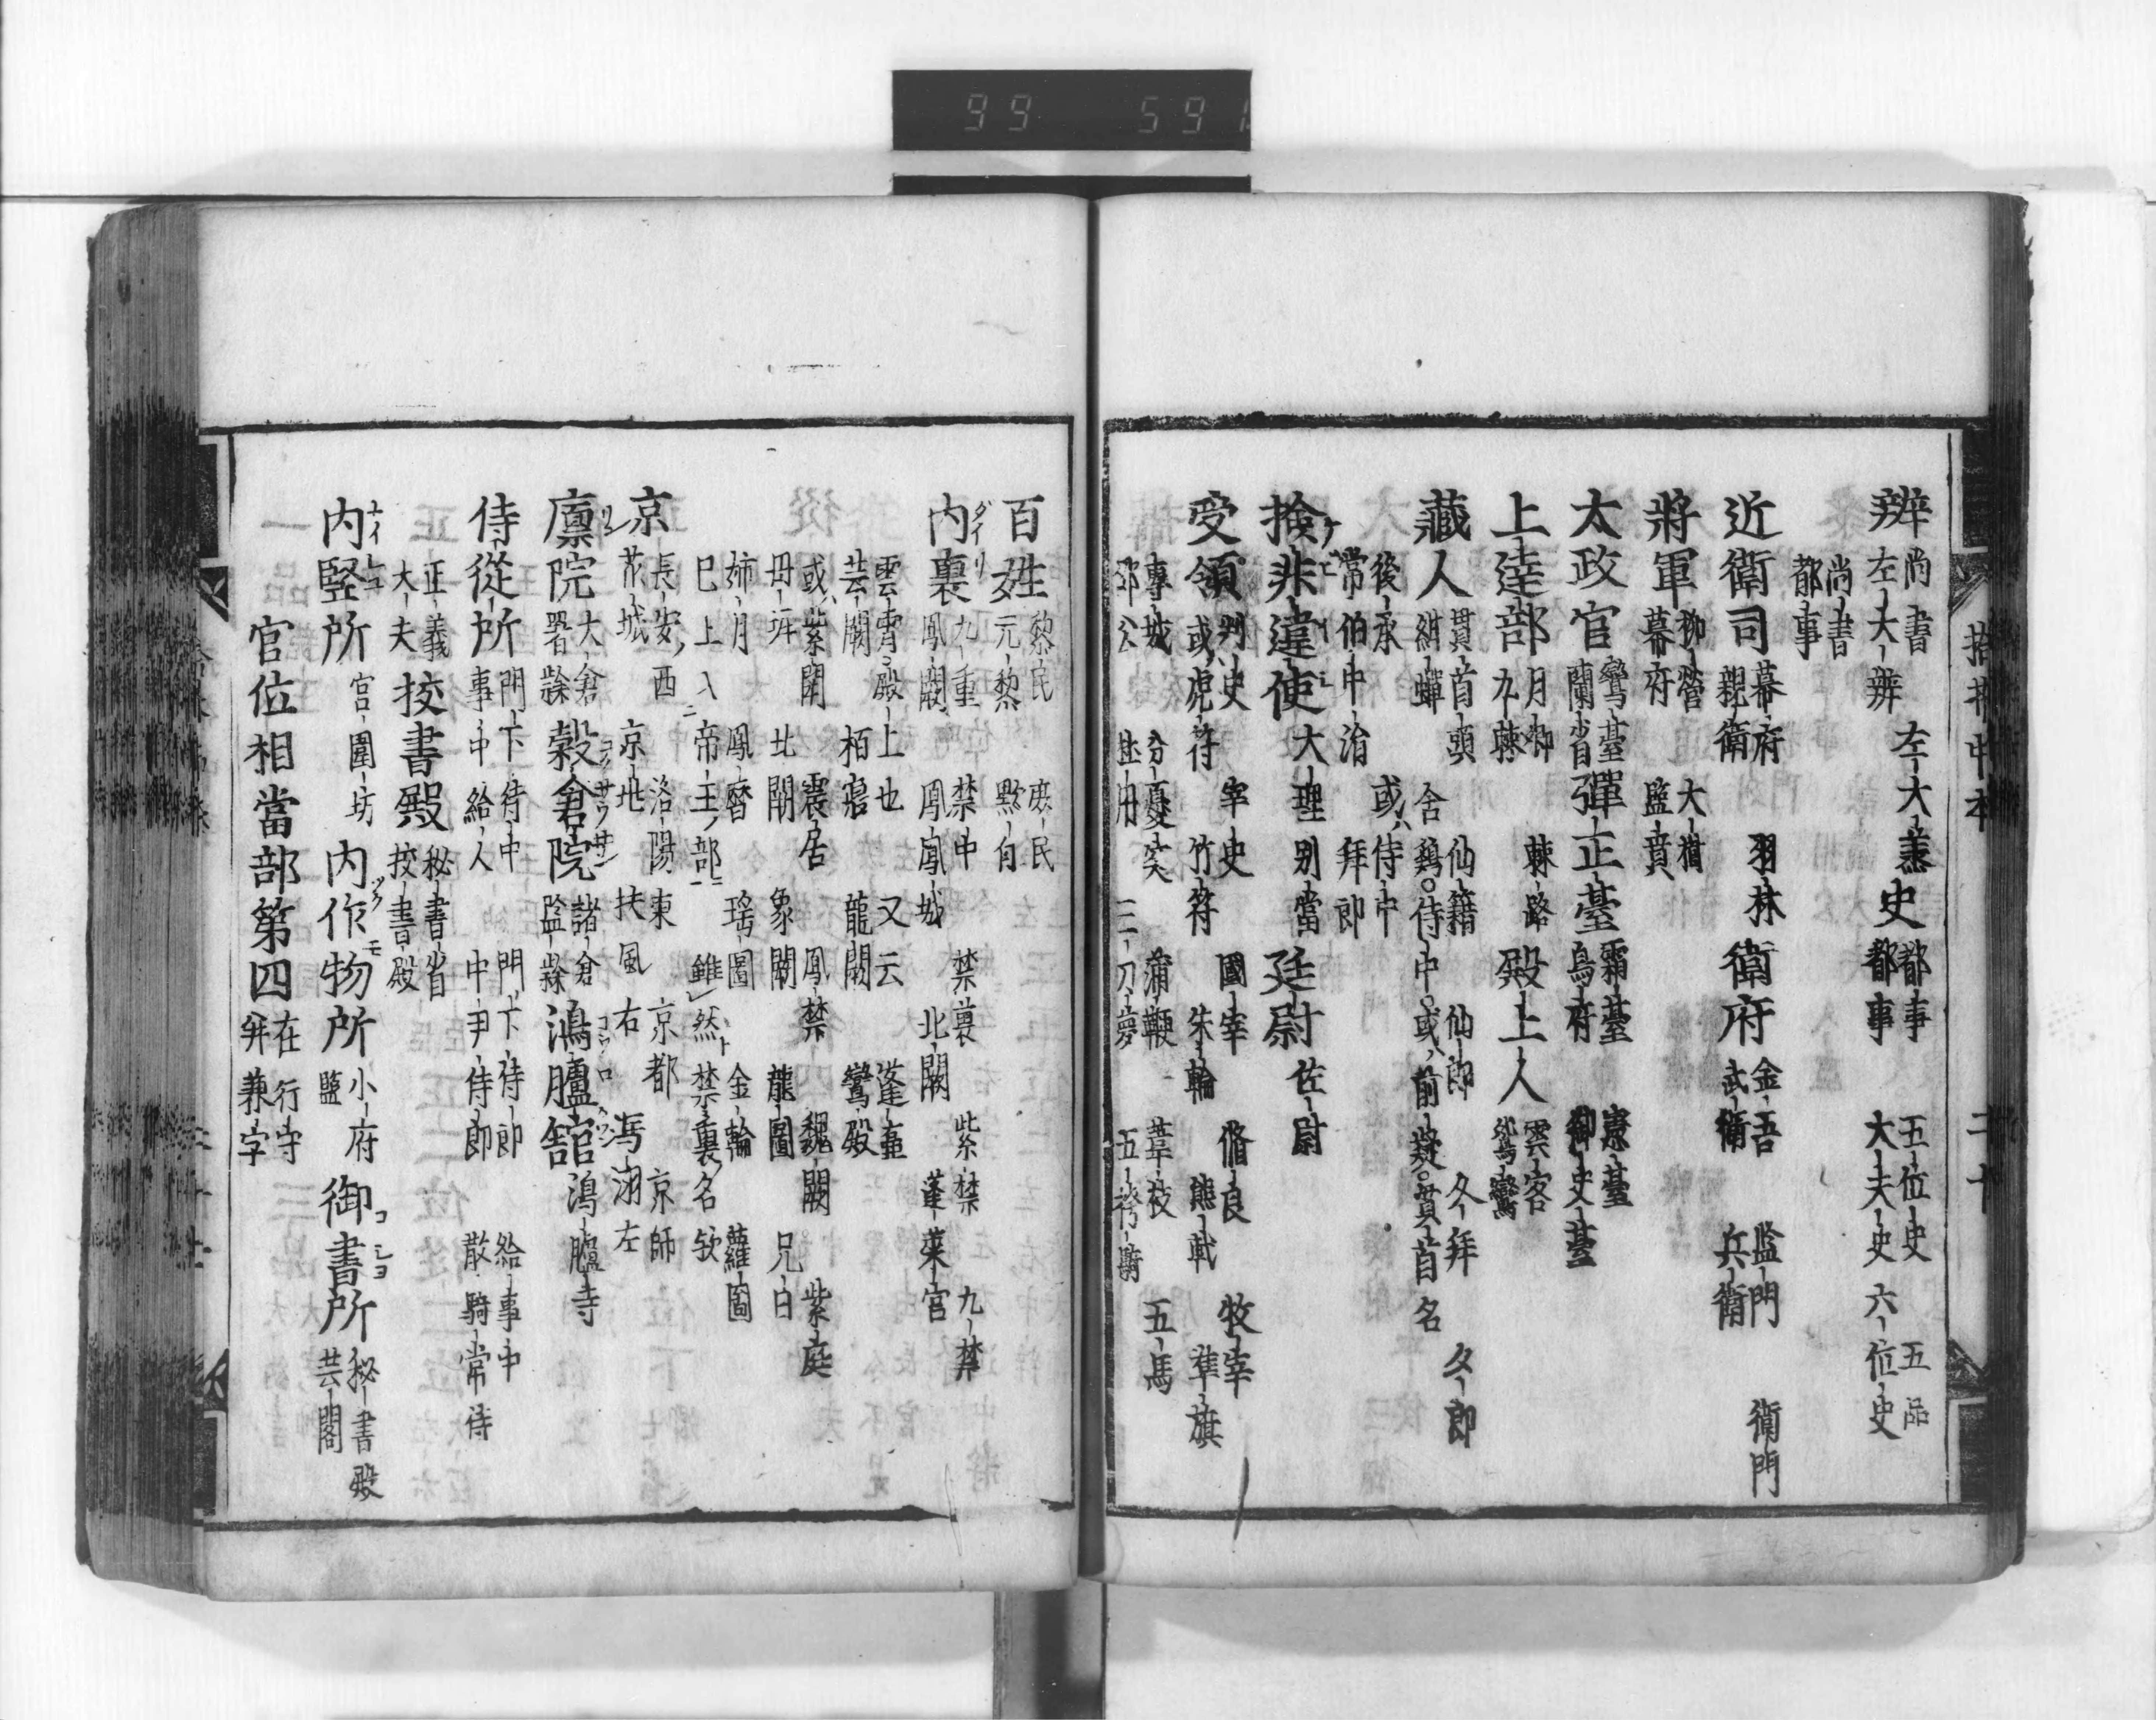 辨 尚書 左大辨 左大丞 史 都事 五位史 五品
都事 大夫史 六位史
尚書
都事
近衛司 幕府 羽林 衛府 金吾 監門 衛門
親衛 武衛 兵衛
將軍 柳營 大樹
幕府 監賁
太政官 鸞臺 彈正臺 霜臺 憲臺
蘭省 烏府 御史臺
上達部 月卿 棘路 殿上人 雲客
九棘 鴛鸞
藏人 貫首頭 仙籍 仙郎 夕拜 夕郎
紺蟬 含鷄○侍中○或前疑○貫首名
後承 或ハ侍中
常伯中治 拜郎
檢非違使 大理別當 廷尉 佐尉
受領 刺史 宰史 國宰 循良 牧宰
或虎符 竹符 朱輪 熊軾 隼旗
專城 分憂 蒲鞭 葦杖 五馬
邵公 三刀夢 五袴
百姓 黎民 庶民
元黎 黔首
内裏 九重 禁中 禁裏 紫禁 九禁
鳳闕 鳳凰城 北闕 蓬萊宮
雲霄殿上也 又云 蓬壷
芸閣 栢寢 龍闕 鸞殿
或紫闈 震居 鳳禁 魏闕 紫庭
北闕 象闕 龍圖 兄日
姉月 鳳曆 瑤圖 金輪 蘿圖
巳上ハ帝王ノ部ニ 雖然ト禁裏ノ名欤
京 長安西 洛陽東 京都 京師
花城 京兆 扶風右 馮翊左
廩院 大倉 穀倉院 諸倉 鴻臚舘 鴻臚寺
署 監
侍從所 門下侍中 門下侍郎 給事中
事中給人 中尹侍郎 散騎常侍
正義 挍書殿 秘書省
大夫 挍書殿
内竪所 宮圍坊 内作物所 小府 御書所 秘書殿
監 芸閣
官位相當部第四 在 行守
并 兼字